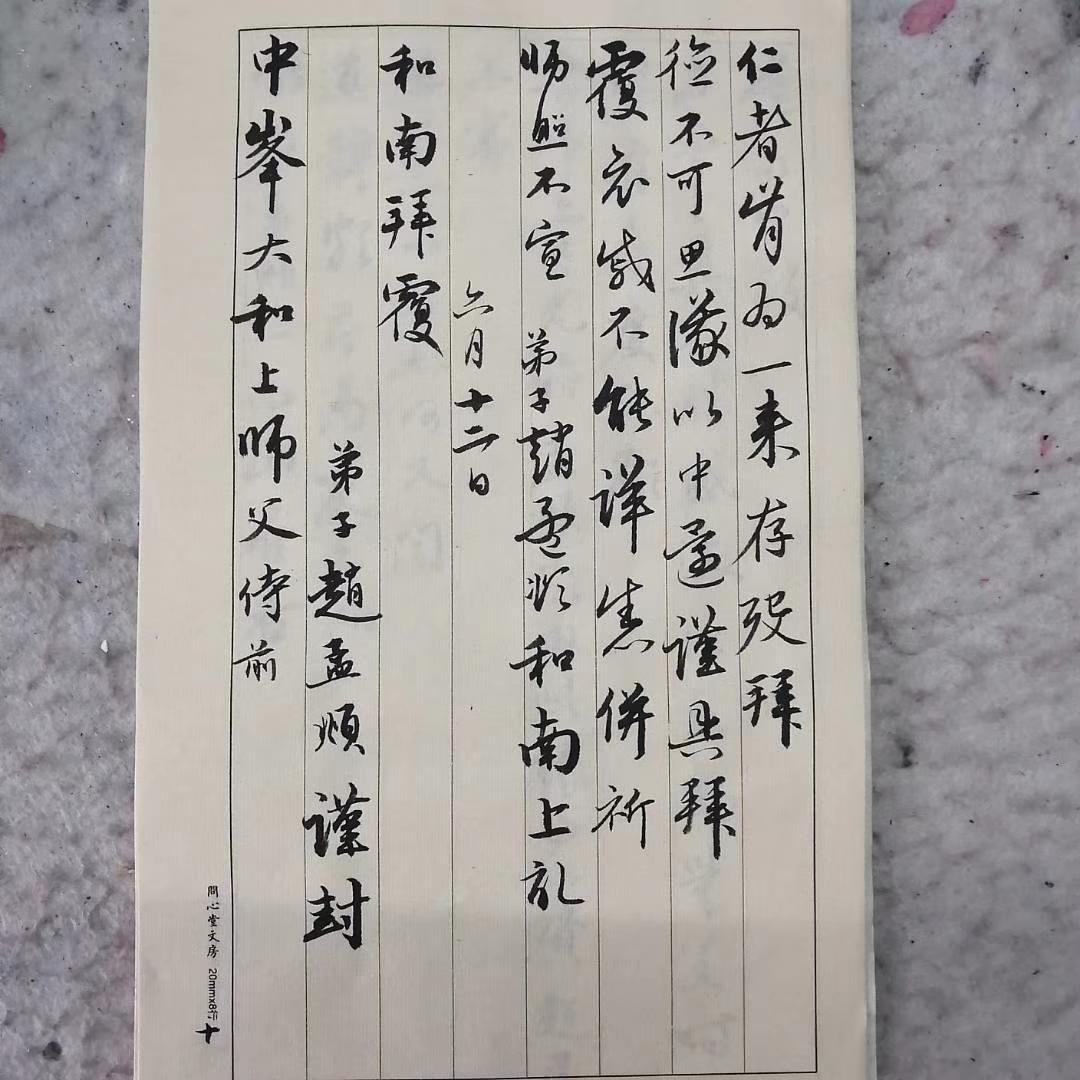 仁者肯为一来存殁拜
德不可思议以中还谨具拜
覆哀感不能详悉併祈
师照不宣 弟子赵孟頫和南上
六月十二日
和南拜覆
弟子趙孟頫謹封
中峯大和上师父侍前
問心堂文房 20mmx8行
十